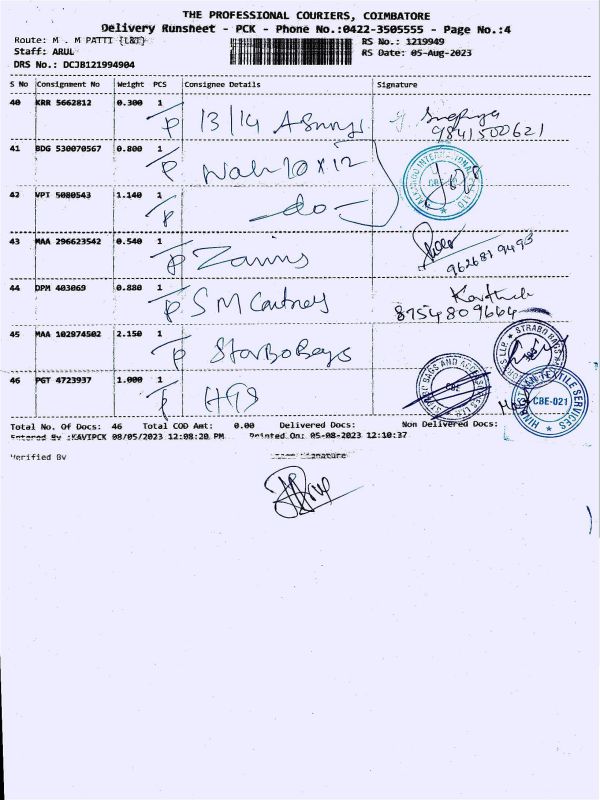 THE PROFESSIONAL COURIERS, COIMBATORE
Delivery Runsheet - PCK - Phone No.:0422-3505555 - Page No.:4
Route: M . M PATTI {L&T}
RS No.: 1219949
Staff: ARUL
RS Date: 05-Aug-2023
DRS No.: DCJB121994904
S No Consignment No Weight PCS Consignee Details Signature
40 KRR 5662812 0.300 1 13/14
9841500621
41 BDG 530070567 0.800 1 10 x 12
42 VPT 5080543 1.140 1 -do-
43 MAA 296623542 0.540 1
9626819493
44 DPM 403069 0.880 1 S M
8754809664
45 MAA 102974502 2.150 1 StarBoBags
STRABO BAGS
46 PGT 4723937 1.000 1 HTS
BAGS AND
CBE
CBE-021
TEXTILE SERVICES
Total No. Of Docs: 46 Total COD Amt: 0.00 Delivered Docs: Non Delivered Docs:
Entered By :KAVIPCK 08/05/2023 12:08:20 PM Printed On: 05-08-2023 12:10:37
Verified By Signature